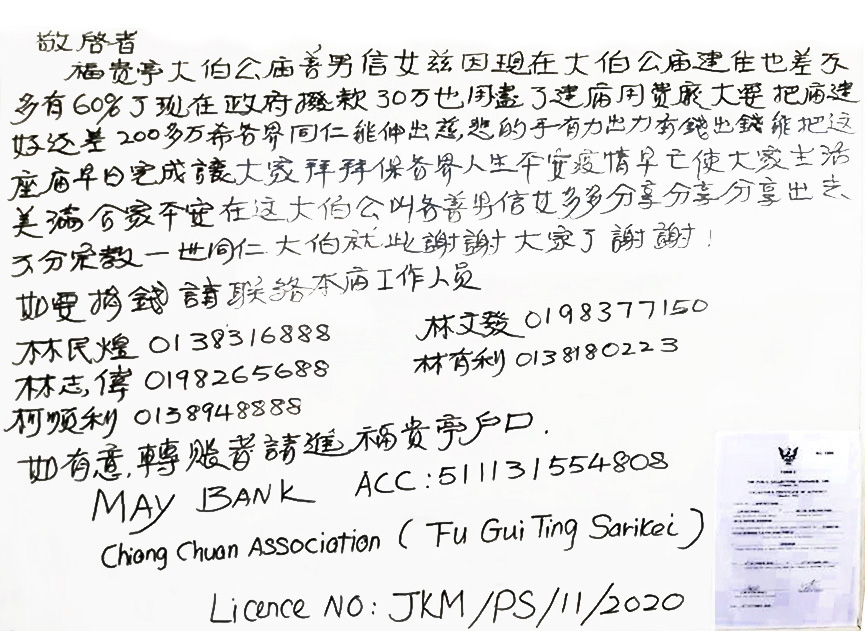 敬啓者
福贵亭大伯公庙善男信女兹因現在大伯公庙建住也差不
多有60%了现在政府撥款30万也用盡了建庙用費龐大要把庙建
好还差200多万希各界同仁能伸出慈悲的手有力出力有錢出錢能把这
座庙早日完成讓大家拜拜保各界人生平安疫情早亡使大家生活
美满合家平安在这大伯公叫各善男信女多多分享分享分享出去
不分宗教一世同仁大伯就此謝謝大家了謝謝!
如要捐錢請联絡本庙工作人员
林民煌 0138316888 林文發 0198377150
林志偉 0198265688 林有利 0138180223
柯顺利 0138948888
如有意轉账者請進福贵亭户口.
MAY BANK ACC:511131554808
Chiong Chuan Association (Fu Gui Ting Sarikei)
Licence NO: JKM/PS/11/2020